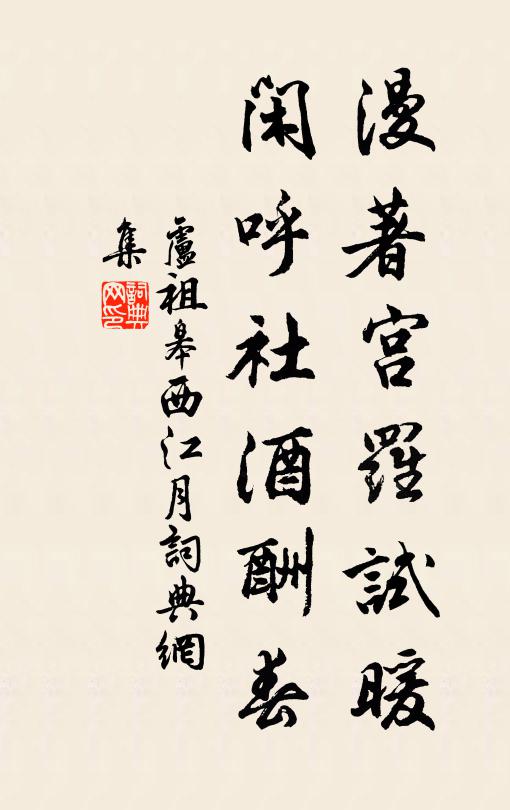 漫著宮羅試暖
閑呼社酒酬春
盧祖皋西江月詞典網
集
詞典
网印